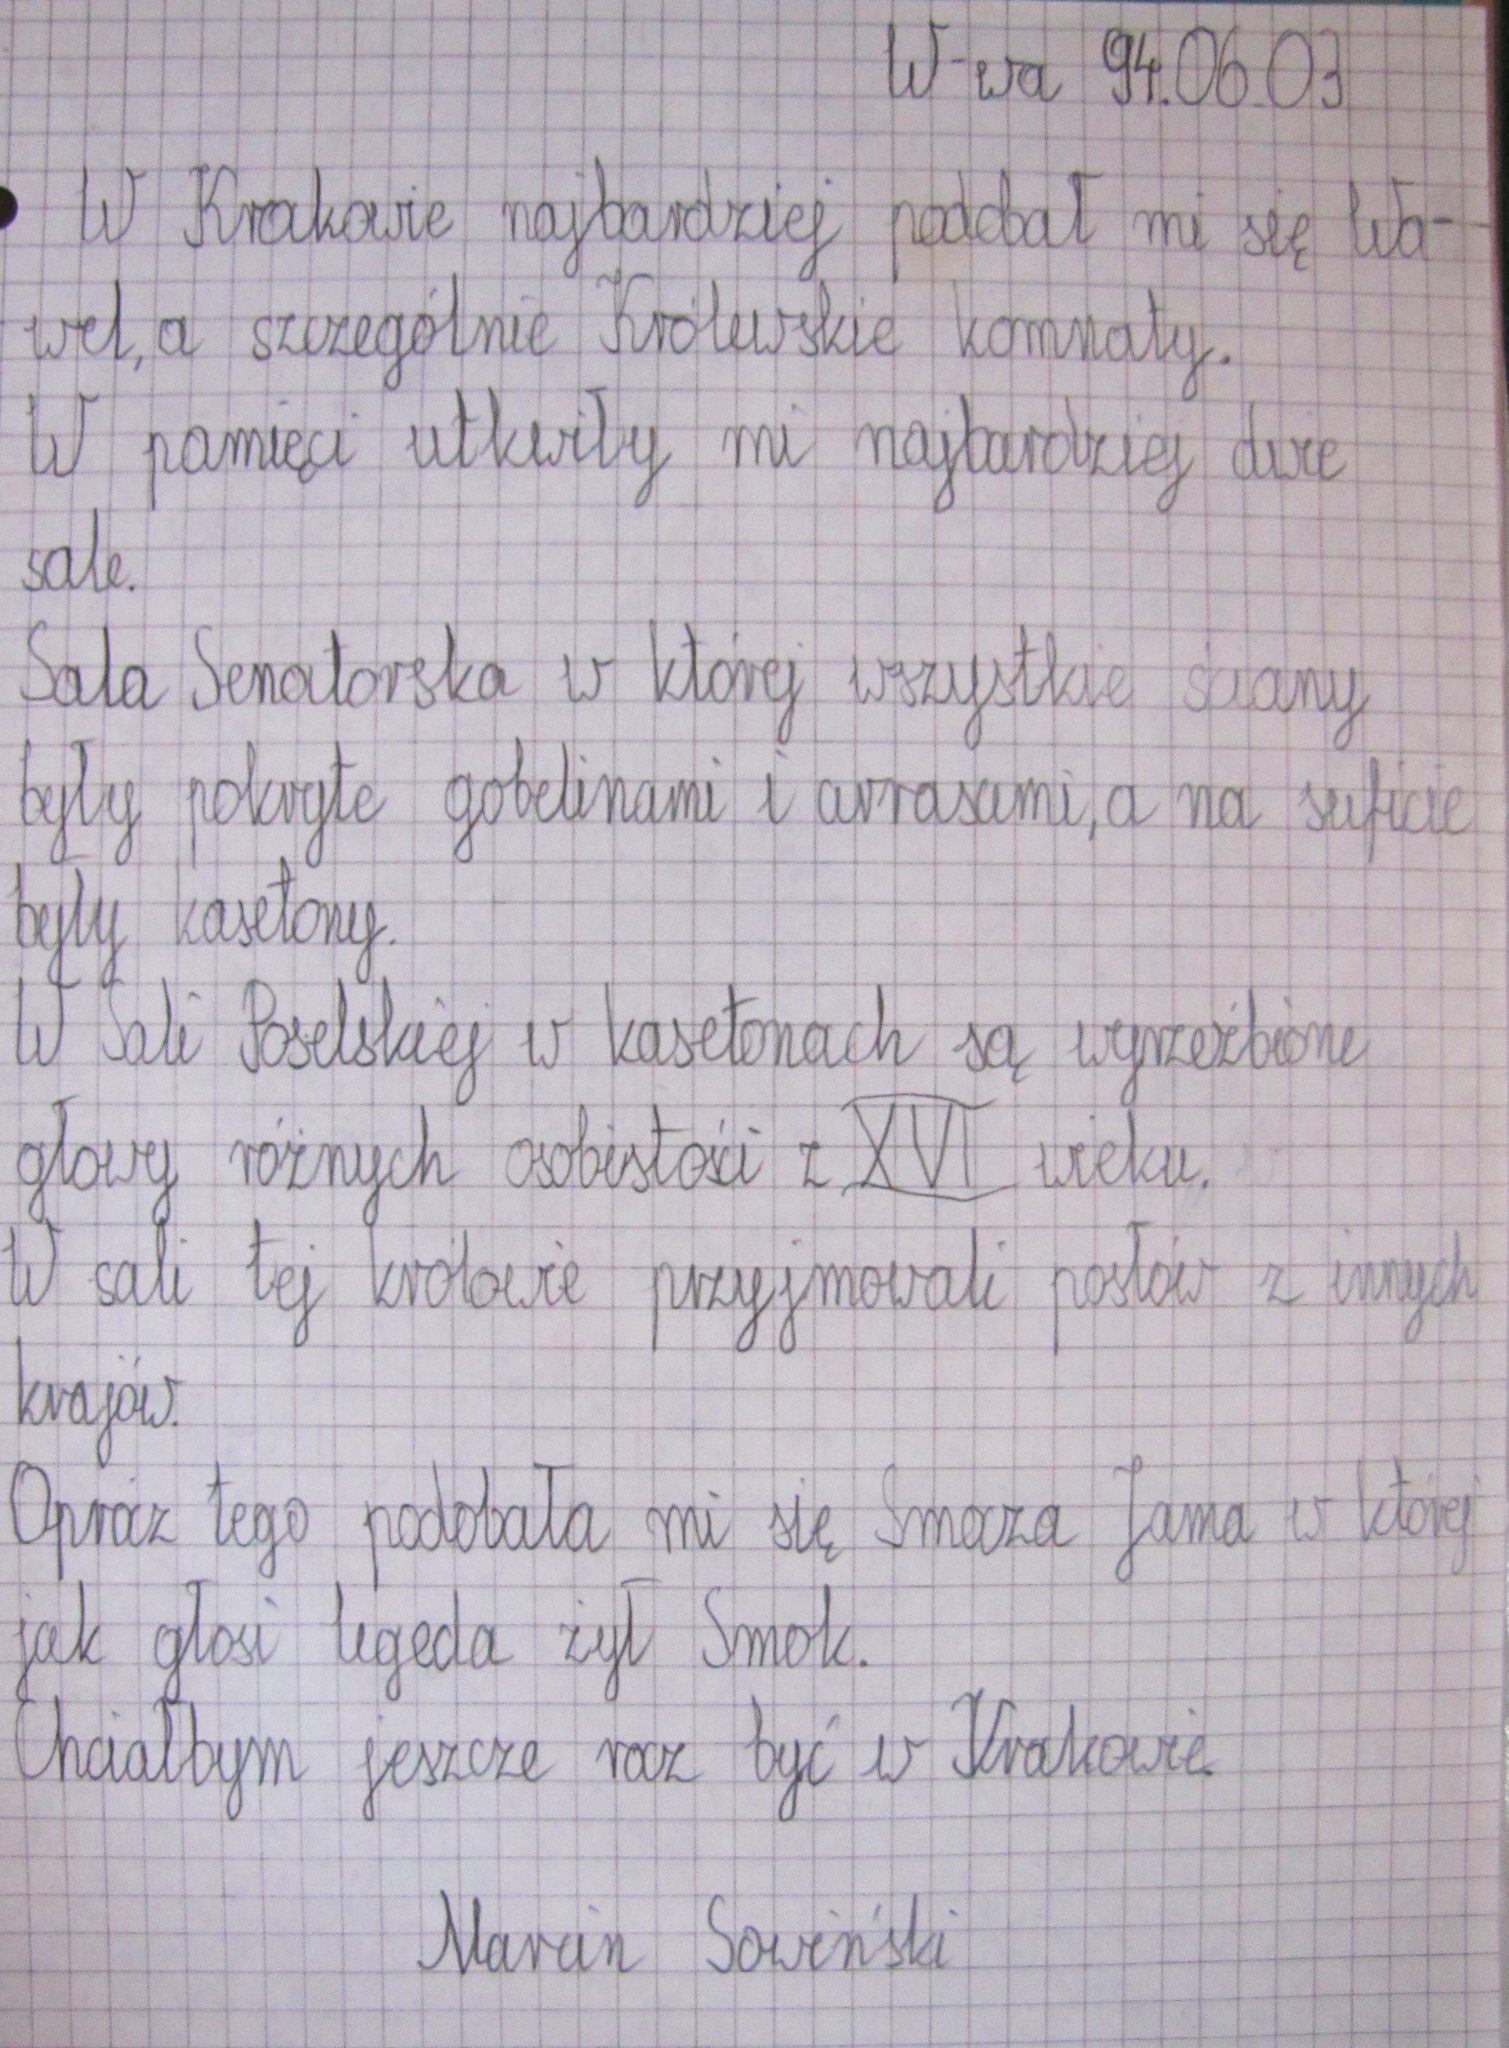 W-wa 94.06.03
W Krakowie najbardziej podobał mi się Wa-
wel, a szczególnie Królewskie komnaty.
W pamięci utkwiły mi najbardziej dwie
sale.
Sala Senatorska w której wszystkie ściany
były pokryte gobelinami i arrasami, a na suficie
były kasetony.
W Sali Poselskiej w kasetonach są wyrzeźbione
głowy różnych osobistości z XVI wieku.
W sali tej królowie przyjmowali posłów z innych
krajów.
Opróz tego podobała mi się Smocza Jama w której
jak głosi legęda żył Smok.
Chciałbym jeszcze raz być w Krakowie.
Marcin Sowiński